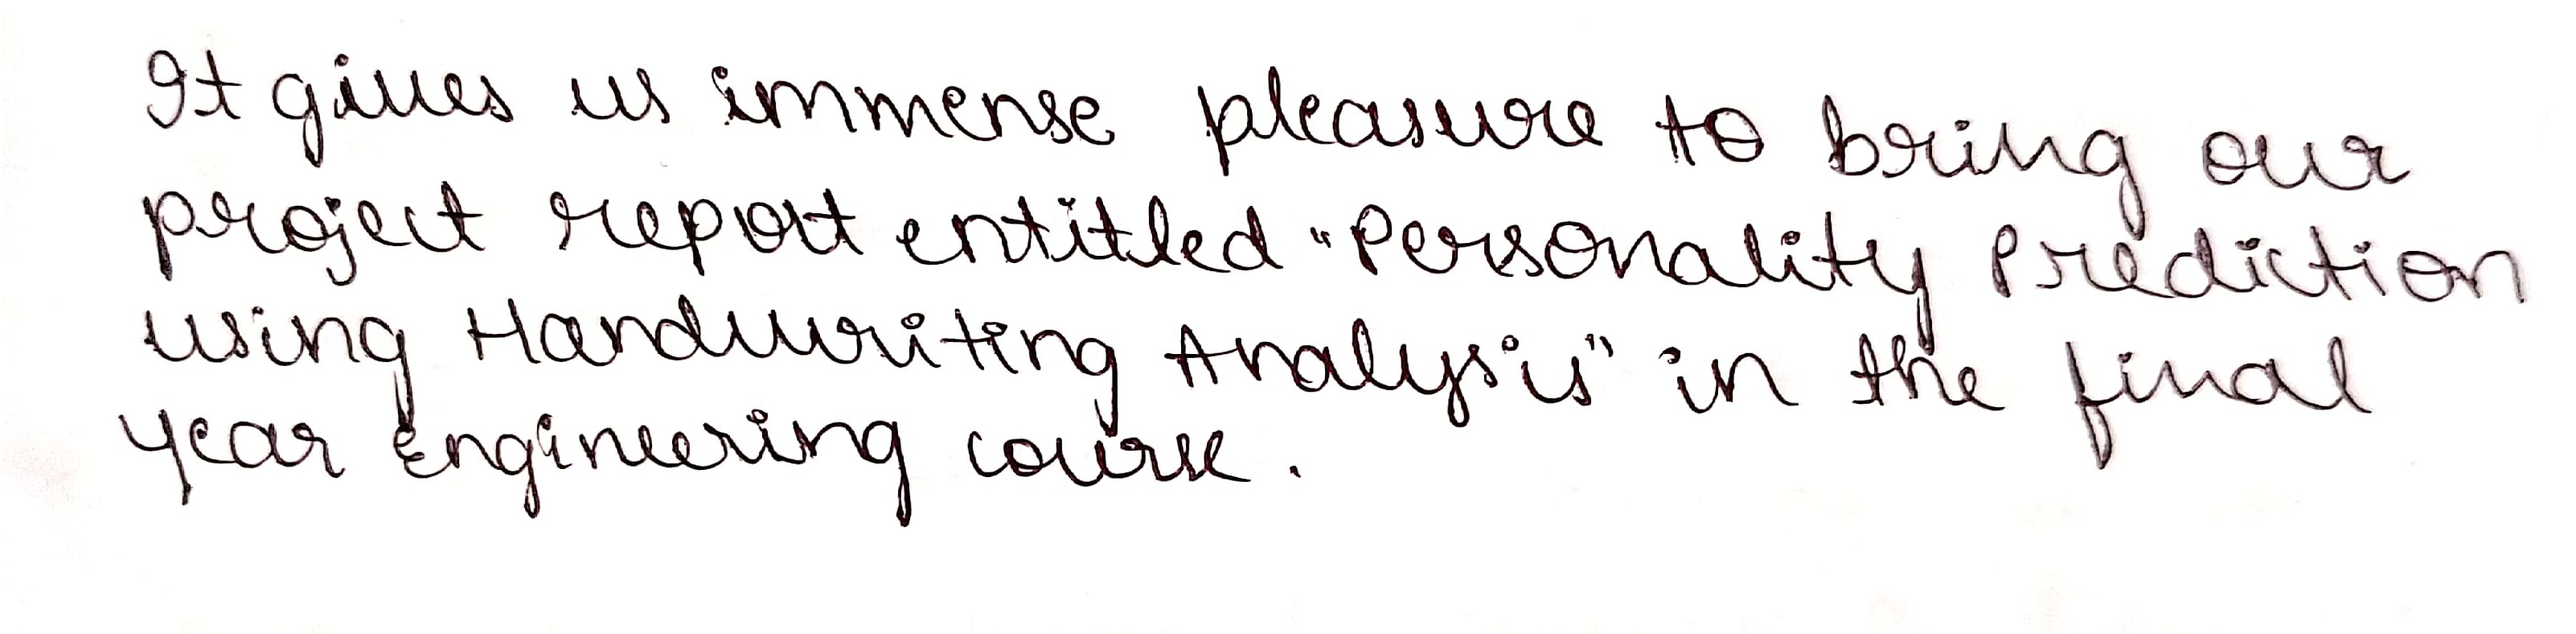 It gives us immense pleasure to bring our
project report entitled "Personality Prediction
using Handwriting Analysis" in the final
year Engineering course.